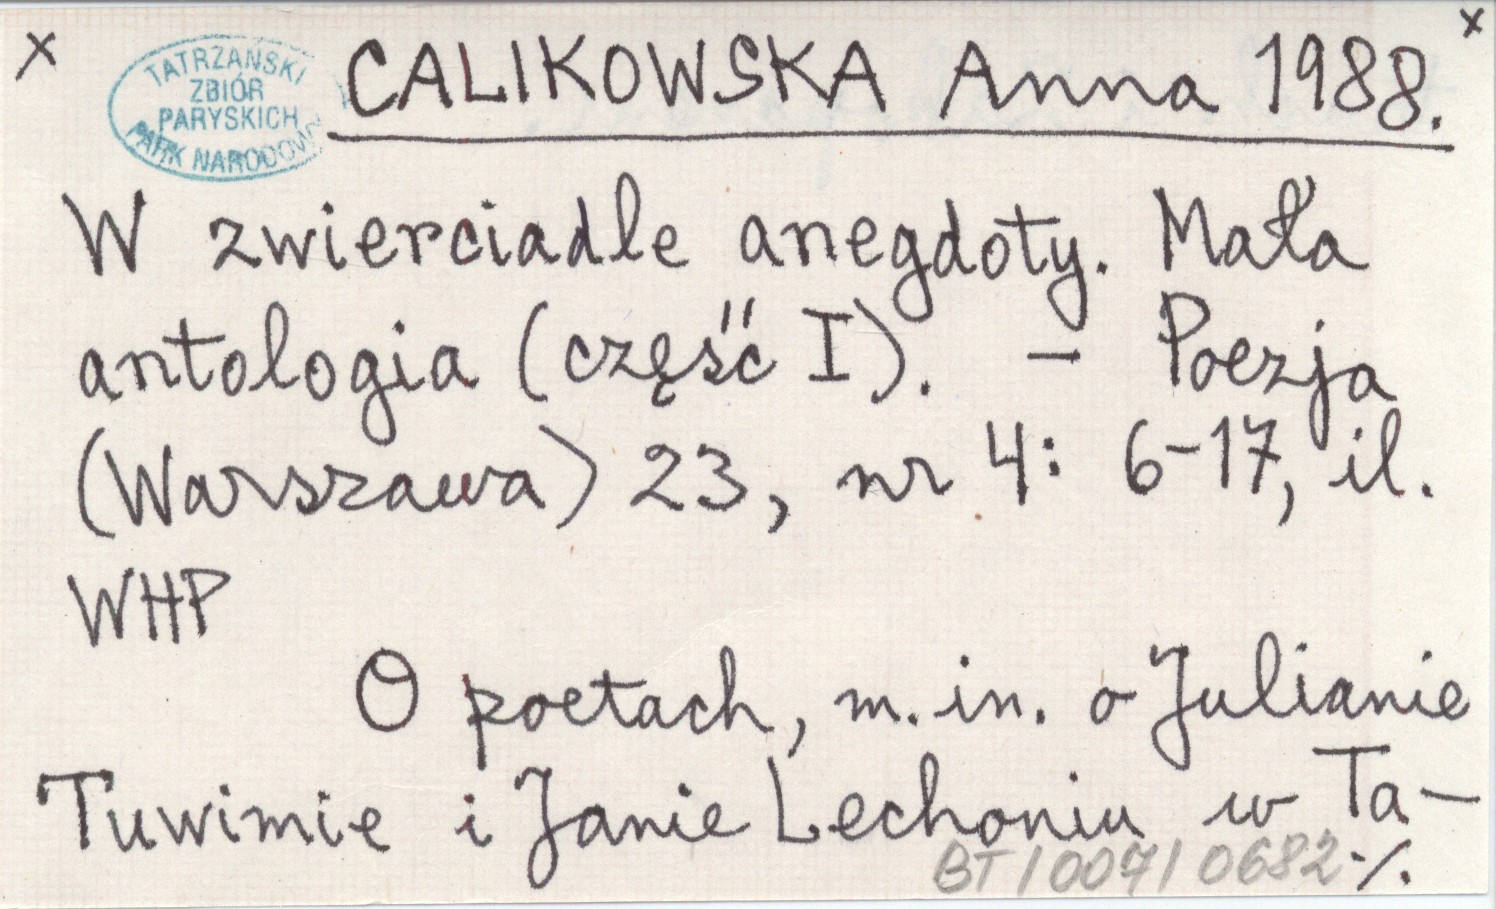 x
x
TATRZAŃSKI
ZBIÓR
PARYSKICH
PARK NARODOWY
CALIKOWSKA Anna 1988.
W zwierciadle anegdoty. Mała
antologia (część I). – Poezja
(Warszawa) 23, nr 4: 6-17, il.
WHP
O poetach, m.in. o Julianie
Tuwimie i Janie Lechoniu w Ta-
BT/007/0682 ./.